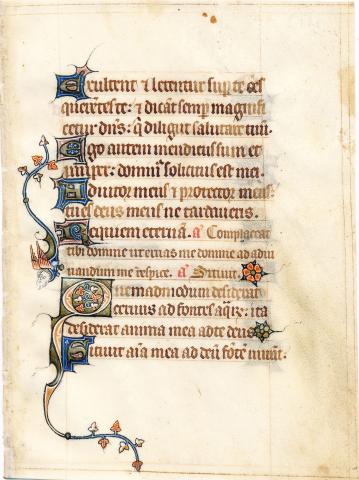 Exultent ⁊ letentur sup(er) te o(mne)s
querentes te: ⁊ dicāt semp(er) magnifi
cetur dn̄s: q̄ diligūt salutare tuū.
Ego autem mendicus sum et
paup(er): domin(us) solicitus est mei.
Adiutor meus ⁊ protector meus
tu es: deus meus ne tardaveris.
Requiem eternā. a Complaceat
tibi domine ut eruas me domine ad adiu
uandum me respice. a Sitiuit.
Quemadmodum desiderat
ceruus ad fontes aq̄ꝝ: ita
desiderat anima mea ad te deus
Sitiuit aīa mea ad deū fōtē uiuū: